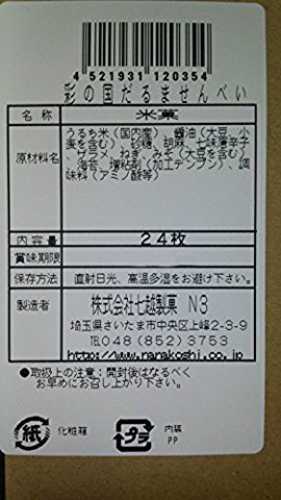 4 521931 120354
彩の国だるませんべい
名称 米菓
原材料名 うるち米(国内産)、醤油(大豆、小
麦を含む)、砂糖、胡麻、七味唐辛子
、ザラメ、ねぎ、みそ(大豆を含む)
、海苔、増粘剤(加工デンプン)、調
味料(アミノ酸等)
内容量 24枚
賞味期限
保存方法 直射日光、高温多湿をお避け下さい。
製造者 株式会社七越製菓 N3
埼玉県さいたま市中央区上峰2-3-9
TEL048(852)3753
https://www.nanakoshi.co.jp
●取扱上の注意:開封後はなるべく
お早めにお召し上がり下さい。
紙 化粧箱 プラ 内装
PP